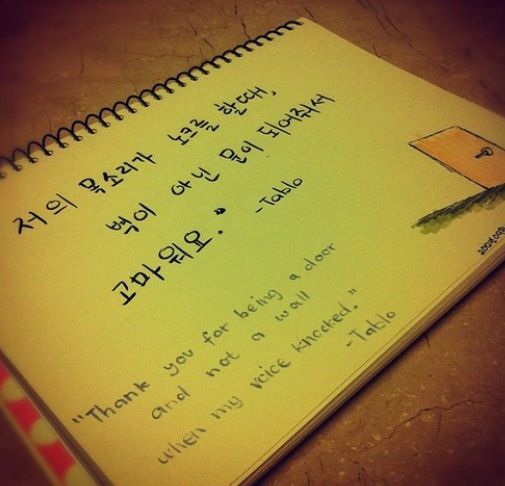 저의 목소리가 노크를 할때,
벽이 아닌 문이 되어줘서
고마워요.
-Tablo
"Thank you for being a door
and not a wall
when my voice knocked."
-Tablo